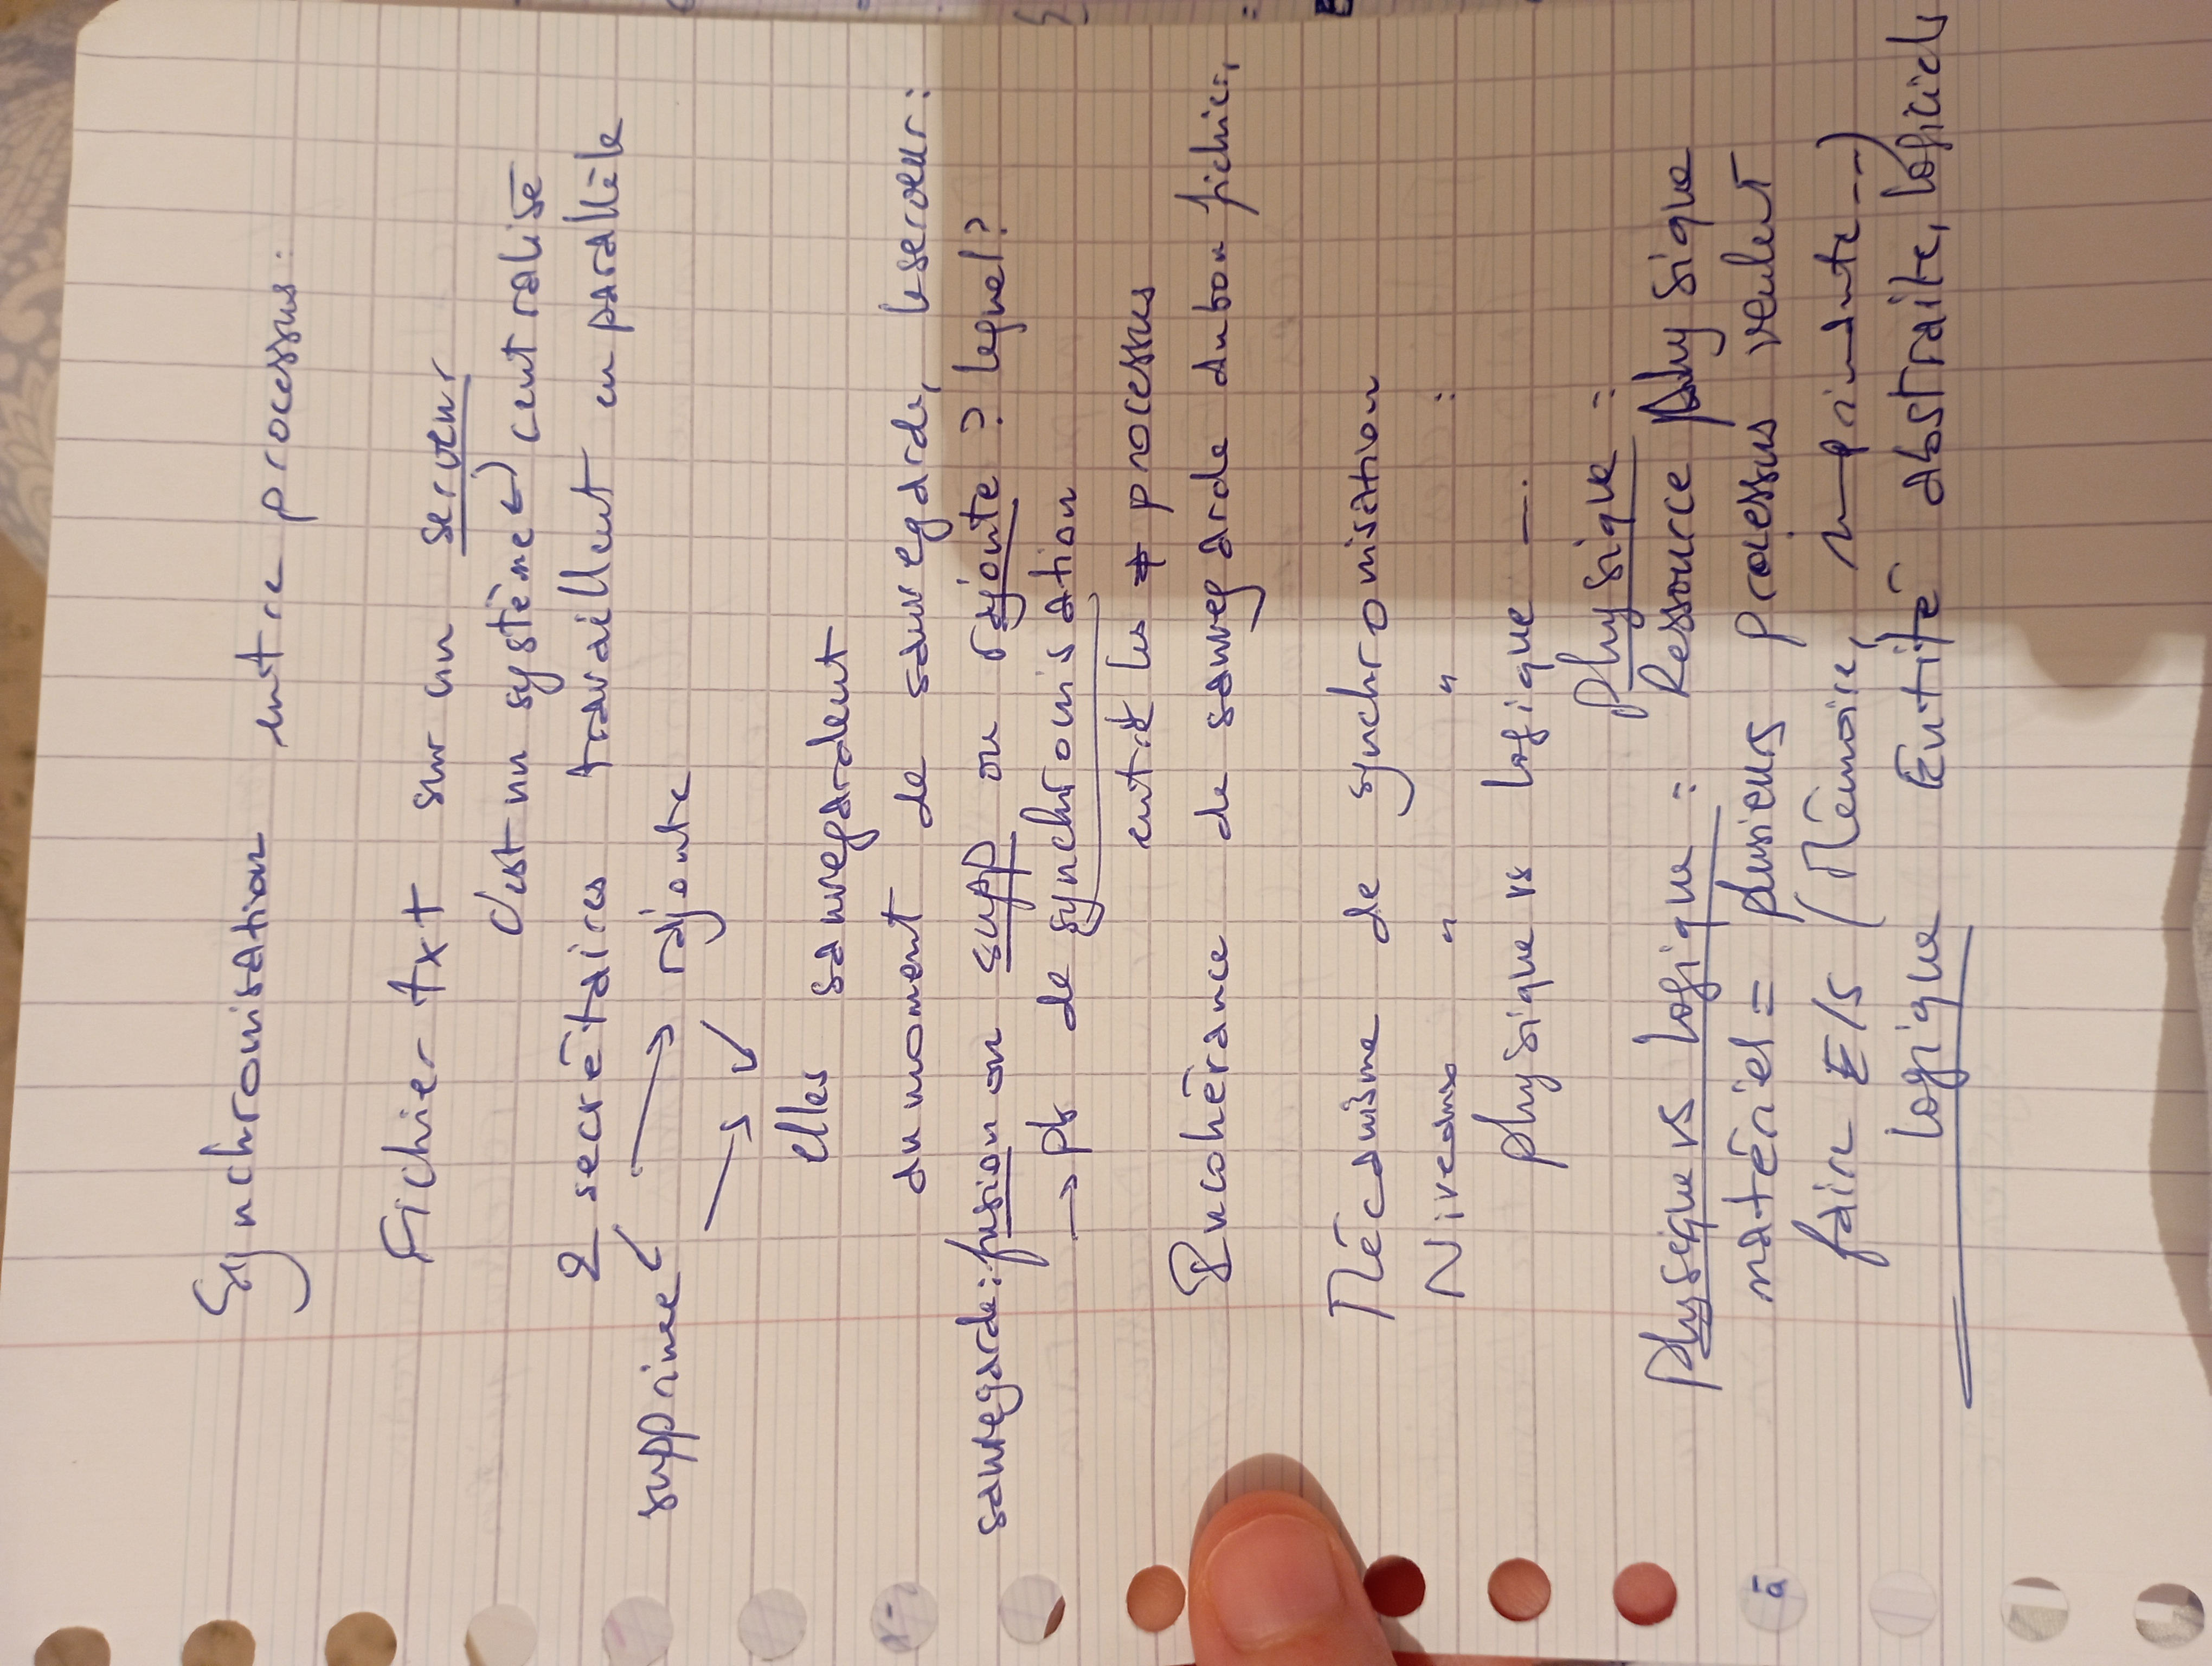 Synchronisation entre processus :
Fichier txt sur un serveur
c'est un système ↵ centralisé
2 secrétaires travaillent en parallèle
supprime rajoute
elles sauvegardent
au moment de sauvegarde, le serveur :
sauvegarde : fusion ou supp ou rajoute ? lequel ?
→ pb de synchronisation
entre les ≠ processus
Incohérance de sauvegarde du bon fichier,
Mécanisme de synchronisation
Niveaux " " :
physique vs logique ---
physique :
physique vs logique : Ressource physique
matériel = plusieurs processus veulent
faire E/S (Mémoire, imprimante ---)
logique Entité abstraite, logiciels